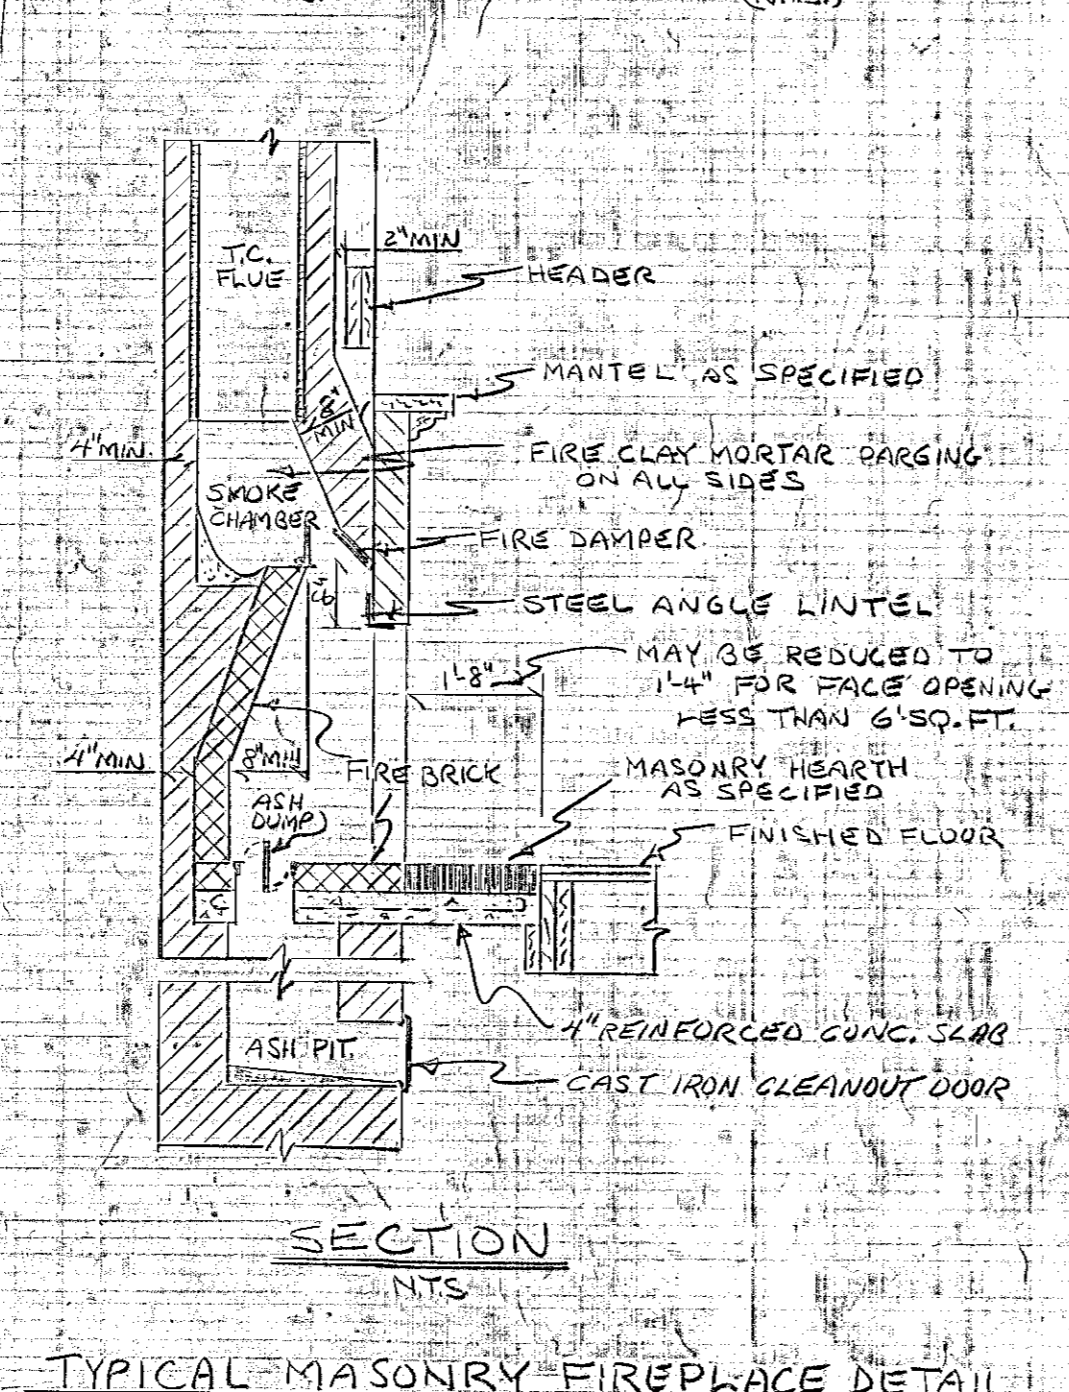 (N.T.S.)
T.C.
FLUE
2" MIN
HEADER
MANTEL AS SPECIFIED
8"
MIN
4" MIN.
FIRE CLAY MORTAR PARGING
ON ALL SIDES
SMOKE
CHAMBER
FIRE DAMPER
STEEL ANGLE LINTEL
1'-8"
MAY BE REDUCED TO
1'-4" FOR FACE OPENING
LESS THAN 6 SQ. FT.
4" MIN.
8" MIN
FIRE BRICK
MASONRY HEARTH
AS SPECIFIED
ASH
DUMP
FINISHED FLOOR
4" REINFORCED CONC. SLAB
ASH PIT.
CAST IRON CLEANOUT DOOR
SECTION
N.T.S
TYPICAL MASONRY FIREPLACE DETAIL